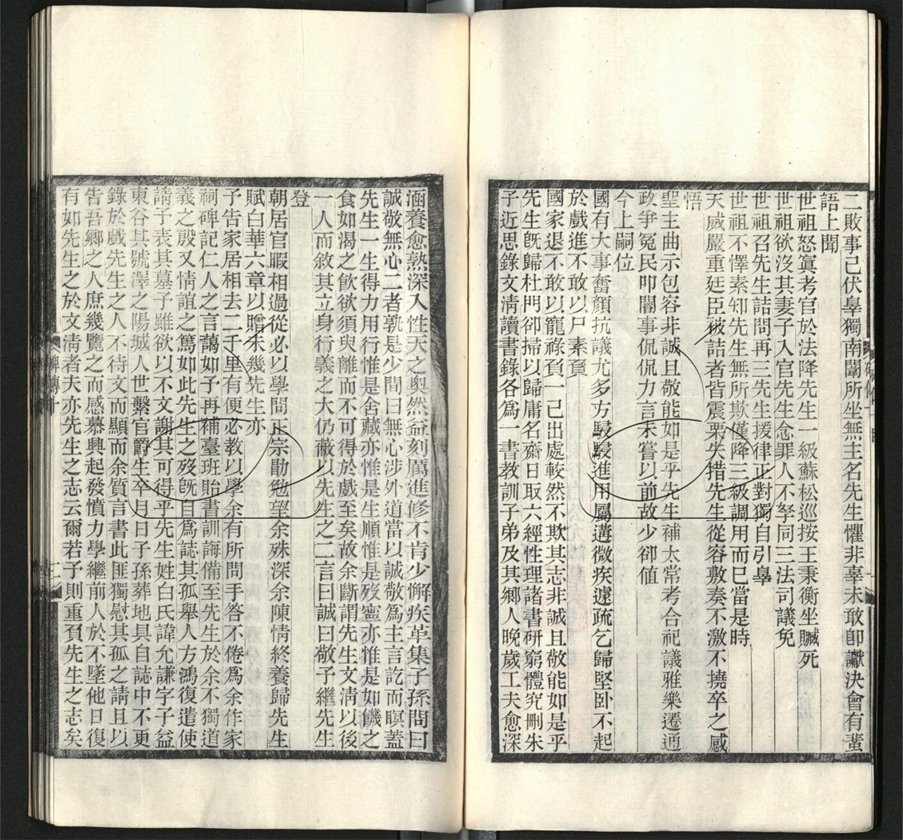 二敗事已伏辜獨南闈所坐無主名先生懼非辜未敢卽讞決會有蜚
語上聞
世祖怒寘考官於法降先生一級蘇松巡按王秉衡坐贓死
世祖欲沒其妻子入官先生念罪人不孥同三法司議免
世祖召先生詰問再三先生援律正對獨自引辜
世祖不懌素知先生無所欺僅降三級調用而已當是時
天威嚴重廷臣被詰者皆震栗失措先生從容敷奏不激不撓卒之感
悟
聖主曲示包容非誠且敬能如是乎先生補太常考合祀議雅樂遷通
政爭冤民叩閽事侃侃力言未嘗以前故少卻値
今上嗣位
國有大事奮顏抗議尤多方駸駸進用屬遘微疾遽疏乞歸堅卧不起
於戲進不敢以尸素負
國家退不敢以寵祿負一己出處較然不欺其志非誠且敬能如是乎
先生旣歸杜門卻掃以歸庸名齋日取六經性理諸書硏窮體究刪朱
子近思錄文淸讀書錄各爲一書敎訓子弟及其鄕人晚歲工夫愈深
涵養愈熟深入性天之奧然益刻厲進修不肯少懈疾革集子孫問曰
誠敬無心二者孰是少間曰無心涉外道當以誠敬爲主言訖而瞑蓋
先生一生得力用行惟是舍藏亦惟是生順惟是歿寧亦惟是如饑之
食如渴之飮欲須臾離而不可得於戲至矣故余斷謂先生文淸以後
一人而敘其立身行義之大仍蔽以先生之二言曰誠曰敬予繼先生
登
朝居官暇相過從必以學問正宗勖勉望余殊深余陳情終養歸先生
賦白華六章以贈未幾先生亦
予告家居相去二千里有便必敎以學余有所問手答不倦爲余作家
祠碑記仁人之言藹如予再補臺班貽書訓誨備至先生於余不獨道
義之殷又情誼之篤如此先生之歿旣自爲誌其孤舉人方鴻復遣使
請予表其墓予雖欲以不文謝其可得乎先生姓白氏諱允謙字子益
東谷其號澤之陽城人世繫官爵生卒月日子孫葬地具自誌中不更
錄於戲先生之人不待文而顯而余質言書此匪獨慰其孤之請且以
告吾鄕之人庶幾覽之而感慕興起發憤力學繼前人於不墜他日復
有如先生之於文淸者夫亦先生之志云爾若予則重負先生之志矣